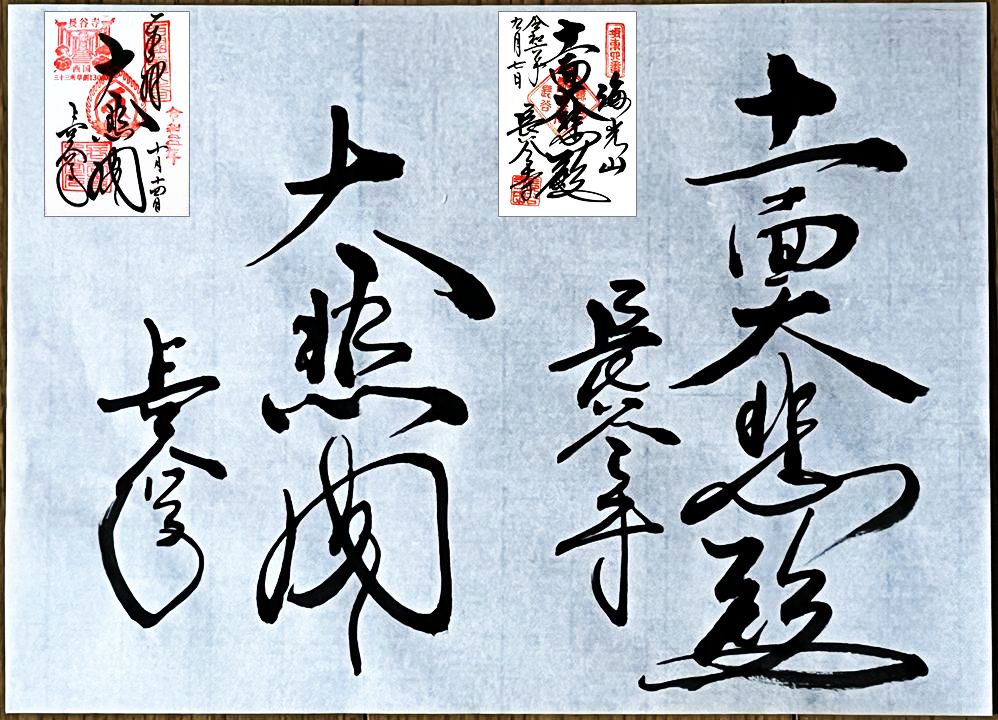 十一面大悲殿
長谷寺
大悲閣
長谷寺
坂東四番
海光山
十一面大悲殿
長谷寺
九月七日
奉拝
十月十四日
大悲閣
長谷寺
長谷寺
西国
三十三所草創1300